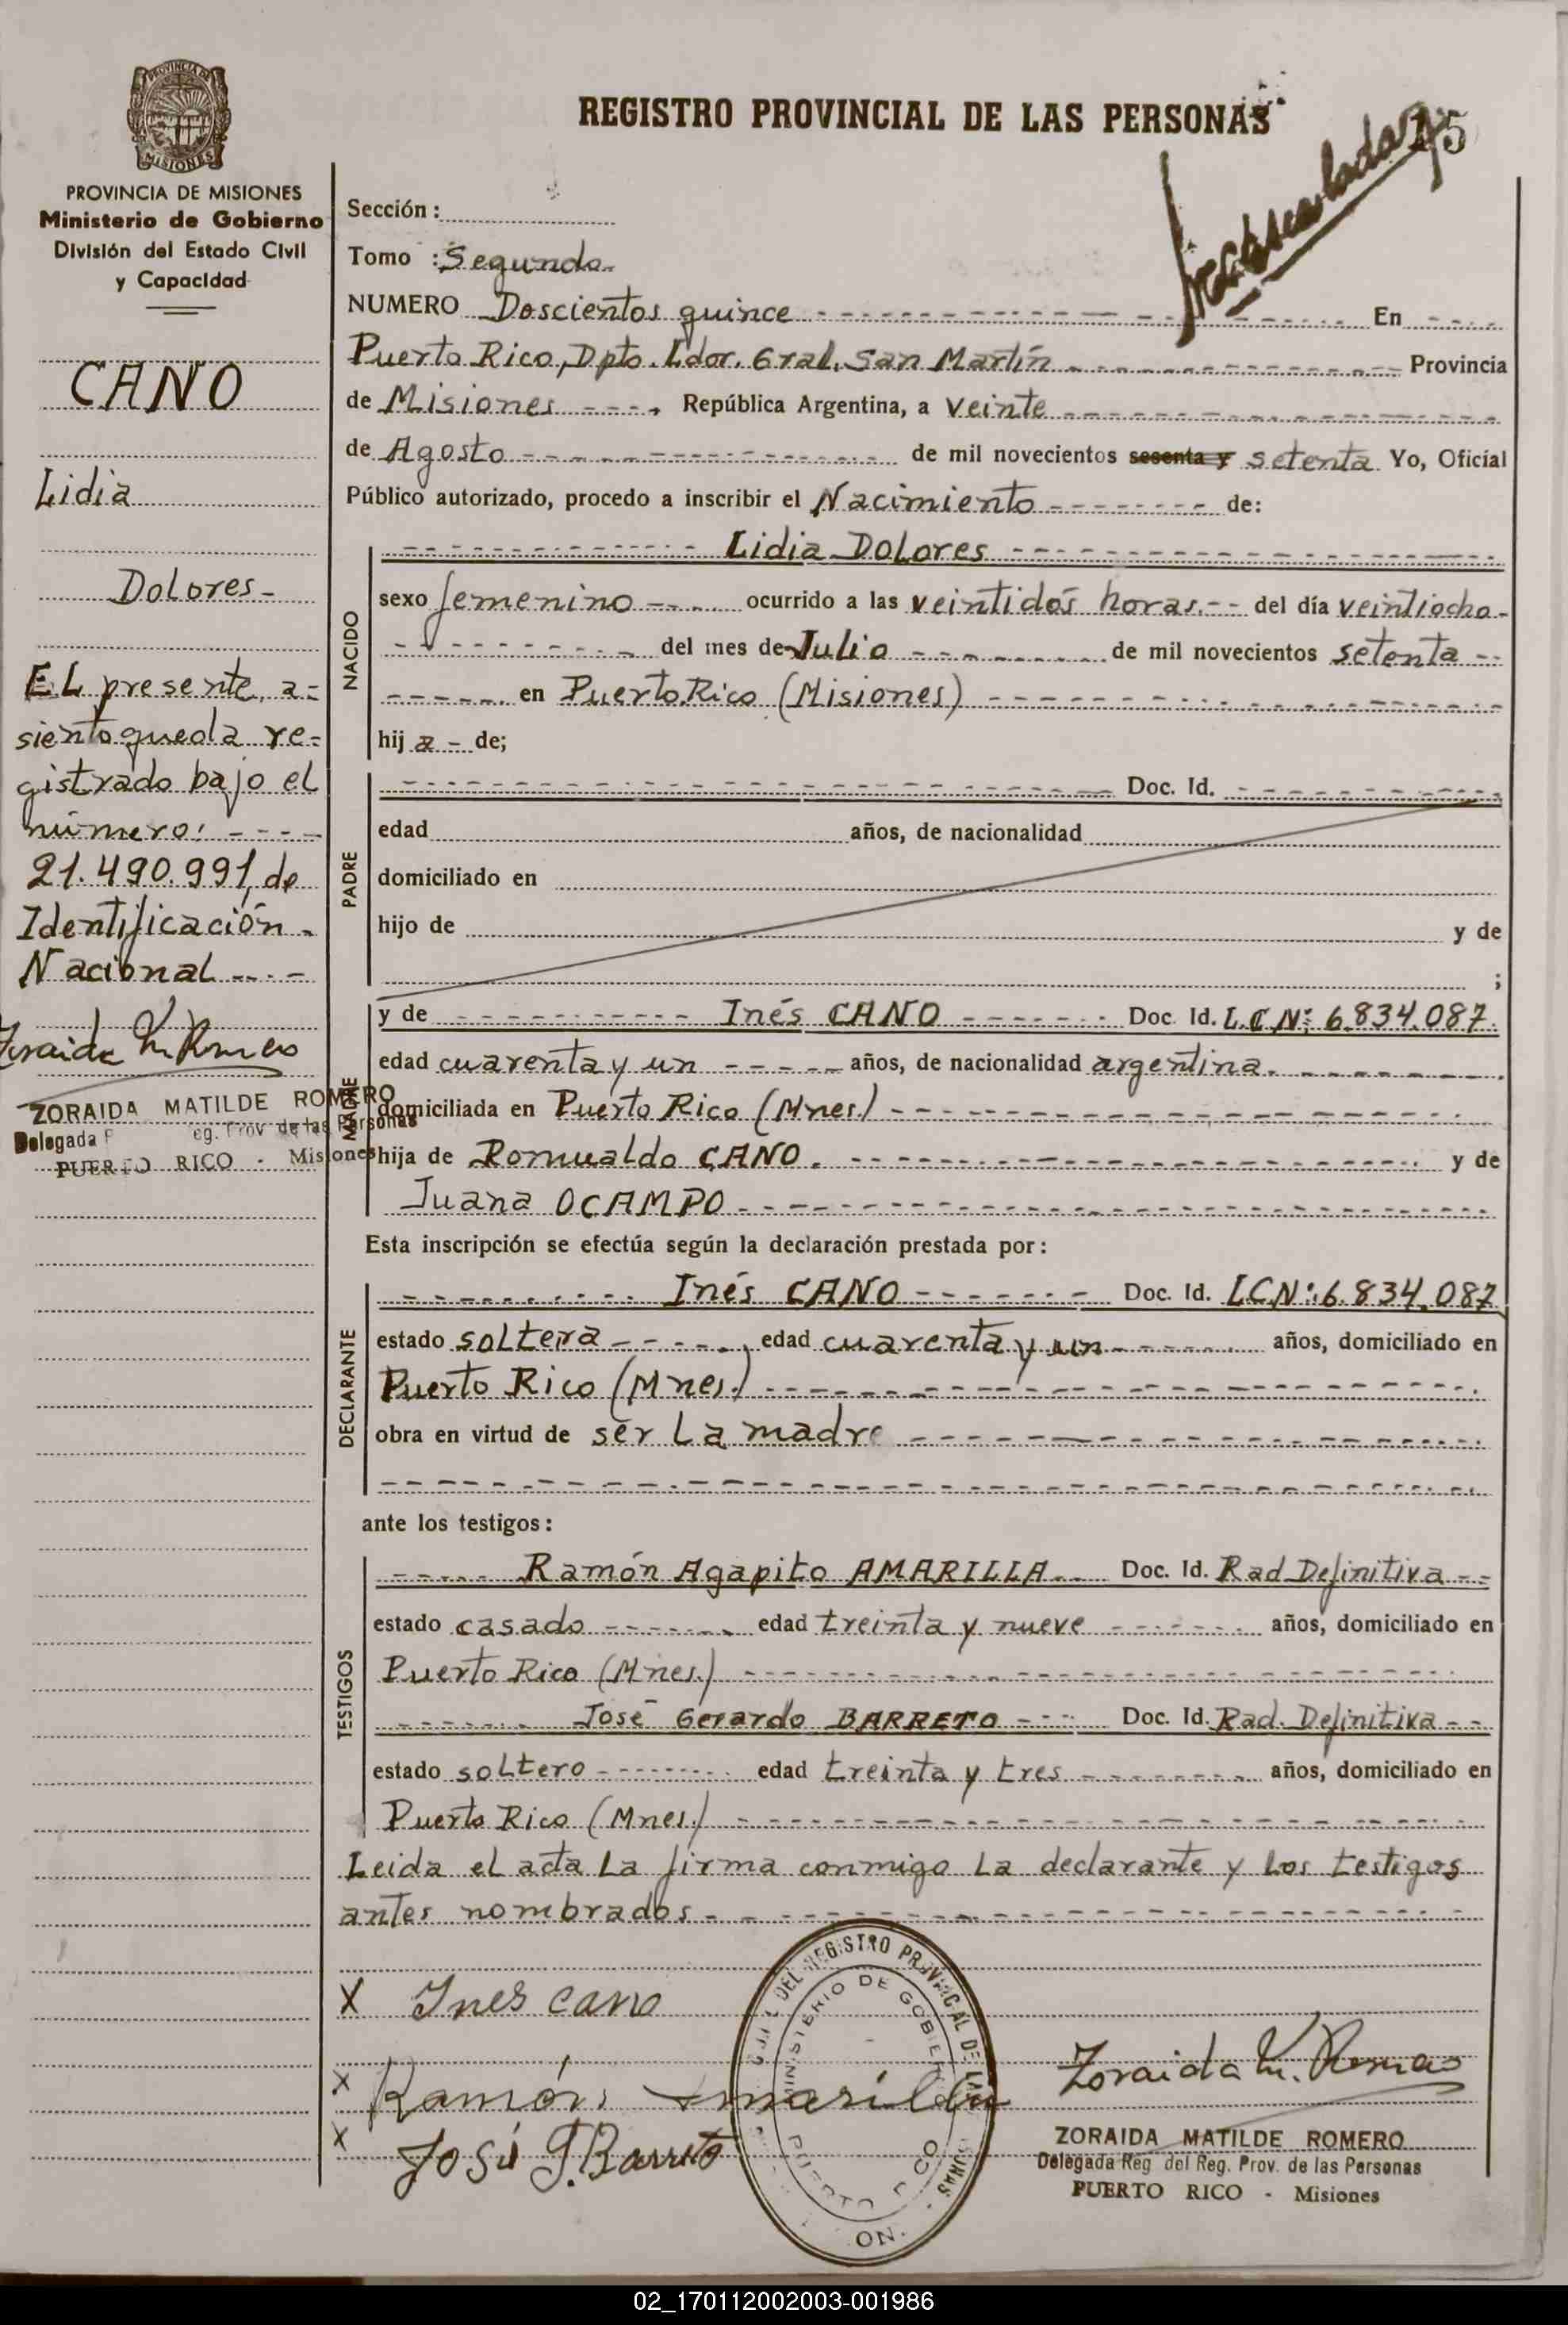 REGISTRO PROVINCIAL DE LAS PERSONAS
PROVINCIA DE MISIONES
Ministerio de Gobierno
División del Estado Civil
y Capacidad
CANO
Lidia
Dolores-
EL presente a=
siento queda re=
gistrado bajo el
número: ----
21.490.991, de
Identificación -
Nacional ----
Zoraida M. Romero
ZORAIDA MATILDE ROMERO
Delegada Reg. Prov de las Personas
PUERTO RICO - Misiones
Sección:
Tomo : Segundo
NUMERO Doscientos quince En
Puerto Rico, Dpto. Ldor. Gral. San Martín Provincia
de Misiones ----, República Argentina, a veinte
de Agosto de mil novecientos sesenta y setenta Yo, Oficial
Público autorizado, procedo a inscribir el Nacimiento de:
NACIDO
Lidia DOLORES
sexo femenino ocurrido a las veintidós horas.-- del día veintiocho-
del mes de Julio de mil novecientos setenta --
en Puerto Rico (Misiones)
hij a - de;
PADRE
Doc. Id.
edad años, de nacionalidad
domiciliado en
hijo de y de
;
MADRE
y de Inés CANO Doc. Id. L.C.Nº: 6.834.087.
edad cuarenta y un años, de nacionalidad argentina.
domiciliada en Puerto Rico (Mnes.)
hija de Romualdo CANO. y de
Juana OCAMPO
Esta inscripción se efectúa según la declaración prestada por:
DECLARANTE
Inés CANO Doc. Id. LCNº: 6.834.087
estado soltera, edad cuarenta y un años, domiciliado en
Puerto Rico (Mnes.)
obra en virtud de ser la madre
ante los testigos:
TESTIGOS
Ramón Agapito AMARILLA Doc. Id. Rad Definitiva --
estado casado edad treinta y nueve años, domiciliado en
Puerto Rico (Mnes.)
José Gerardo BARRETO Doc. Id. Rad. Definitiva --
estado soltero edad treinta y tres años, domiciliado en
Puerto Rico (Mnes.)
Leida el acta la firma conmigo la declarante y los testigos
antes nombrados.
X Ines cano
X Ramón Amarilla
X José G. Barreto
DEL REGISTRO PROVINCIAL DE LAS PERSONAS
MINISTERIO DE GOBIERNO
PUERTO RICO
Zoraida M. Romero
ZORAIDA MATILDE ROMERO
Delegada Reg del Reg. Prov. de las Personas
PUERTO RICO - Misiones
02_170112002003-001986